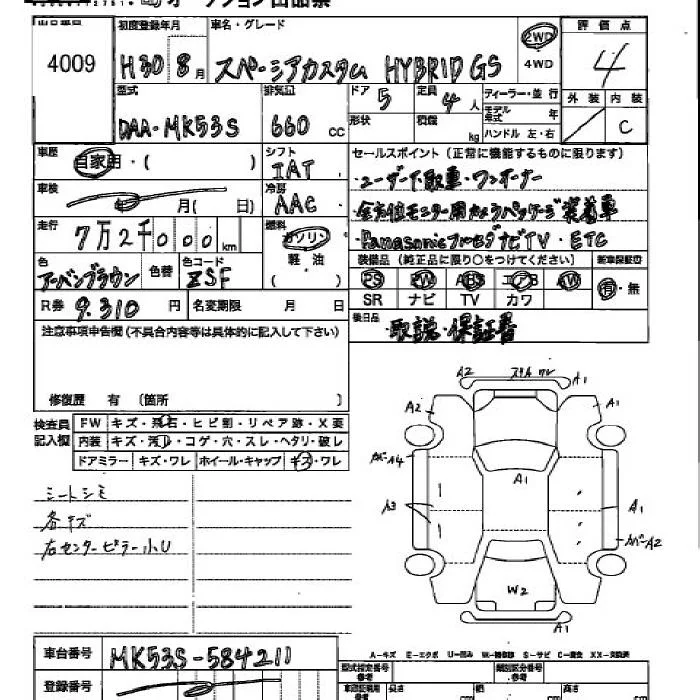 オークション出品票
4009
初度登録年月 車名・グレード 評価点
H30 8月 スペーシアカスタム HYBRID GS 2WD 4WD 4
型式 排気量 ドア 定員 ディーラー・並行 外装 内装
DAA-MK53S 660 cc 5 4人 モデル年式 年 C
形状 積載 kg ハンドル 左・右
車歴 自家用・( ) シフト IAT
セールスポイント (正常に機能するものに限ります)
・ユーザー下取車・ワンオーナー
車検 年 月( 日) 冷房 AAC
・全方位モニター用カメラパッケージ装着車
走行 7万2千000km 燃料 ガソリン 軽油 ( )
・Panasonicフルセグナビ TV・ETC
装備品 (純正品に限り○をつけてください) 新車保証書
色 アーバンブラウン 色替 色コード ZSF
PS PW ABS エアB AW 有・無
SR ナビ TV カワ
R券 9.310円 名変期限 月 日
後日品 ・取説・保証書
注意事項申告欄 (不具合内容等は具体的に記入して下さい)
修復歴 有 〔箇所 〕
検査員記入欄 FW キズ・飛石・ヒビ割・リペア跡・X要
内装 キズ・汚レ・コゲ・穴・スレ・ヘタリ・破レ
ドアミラー キズ・ワレ ホイール・キャップ キズ・ワレ
シートシミ
各キズ
右センターピラー小U
A2 ワレ A1
A2 A1
カバーA4 A1
A3 A1
カバーA2
W2
A1
車台番号 MK53S-584211
登録番号
A-キズ E-エクボ U-凹み W-補修跡 S-サビ C-腐食 XX-交換済
型式指定番号 類別区分番号
長さ cm 幅 cm 高さ cm